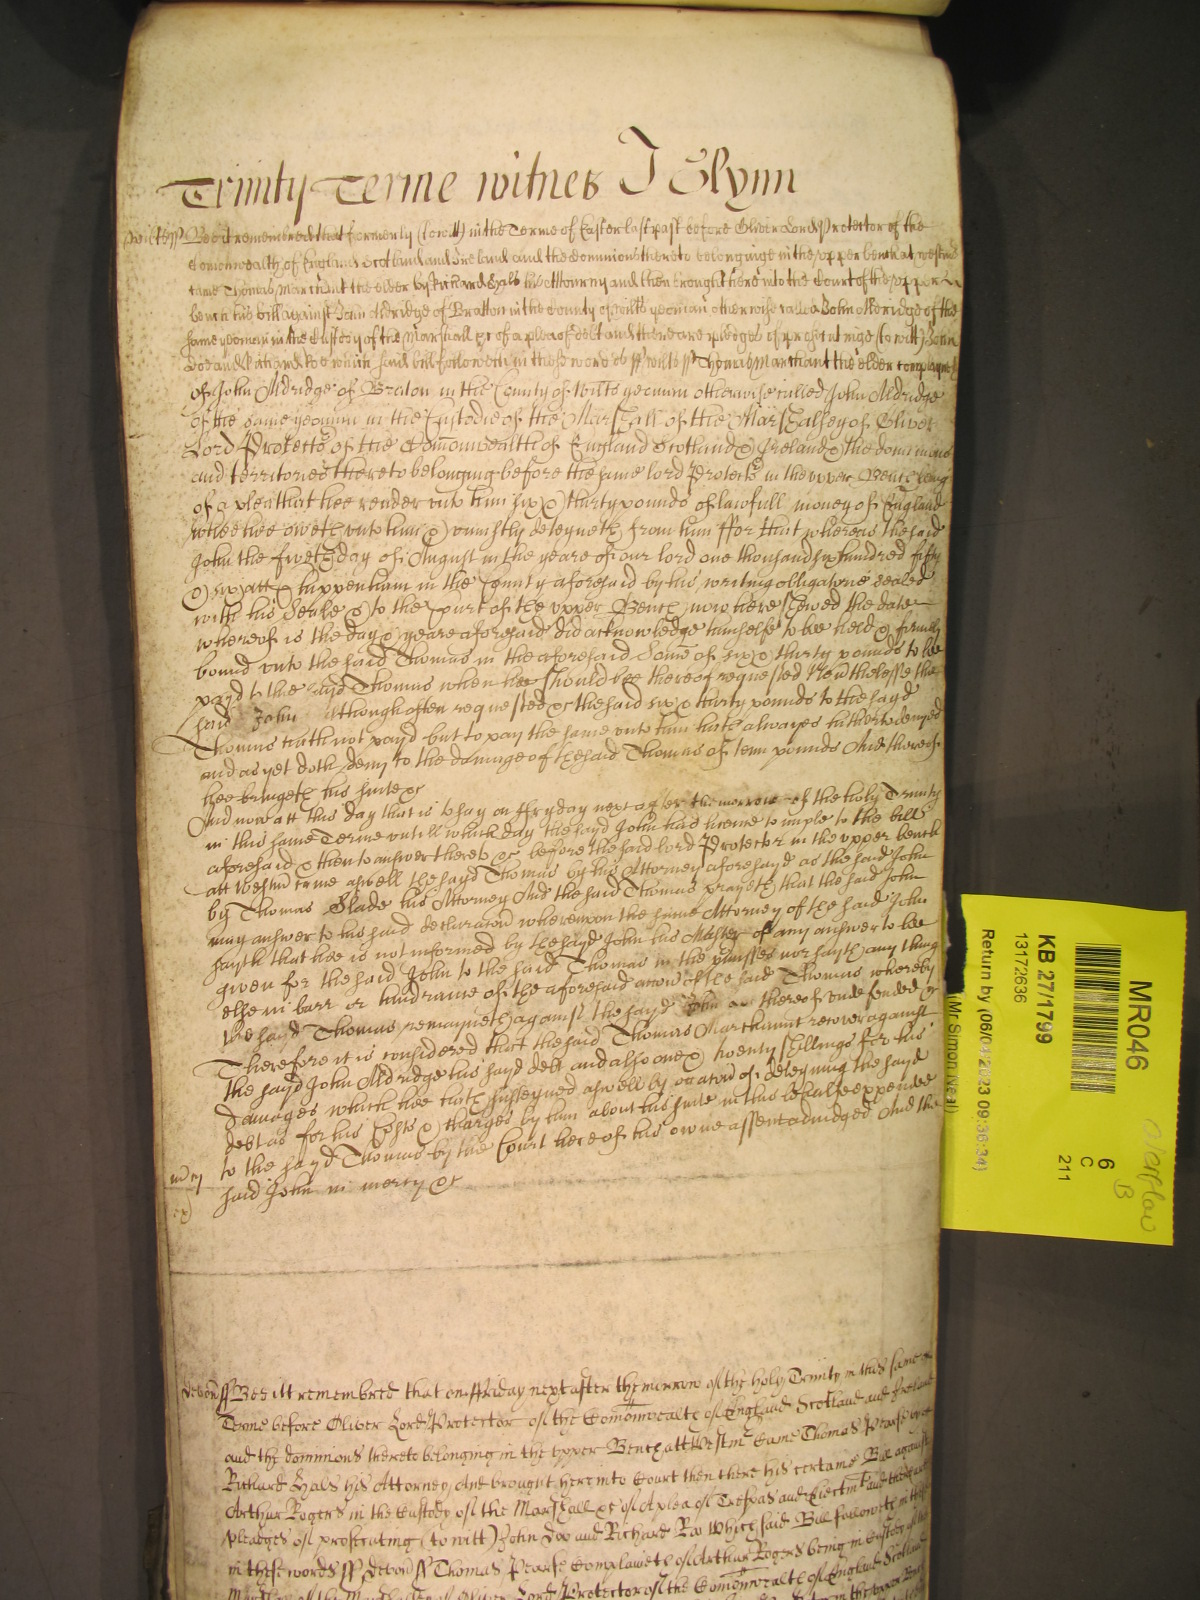 Trinity Terme witnes J Glynn
Wiltes ss Bee it remembred that formerly (to witt) in the Terme of Easter last past before Oliver Lord Protector of the
Comonwealth of England Scotland and Ireland and the dominions thereto belonginge in the upper bench at
came Thomas Marchant the elder by Richard Hals his Attorney and then brought here into the Court of the upper
bench his bill against John Aldridge of Bratton in the County of wilts yeoman otherwise called John Aldridge of the
same yeoman in the custody of the Marshall &c of a plea of debt and there are pledges of (to witt) John
Doe and Richard Roe which said bill followeth in these words ss wilts ss Thomas Marchant the elder complayneth
of John Aldridge of Bratton in the County of wilts yeoman otherwise called John Aldridge
of the same yeoman in the Custodie of the Marshall of the Marshalsey of Oliver
Lord Protector of the Comonwealth of England Scotland & Ireland & the dominions
and territories thereto belonging before the same lord Protector in the upper Bench being
of a plea that hee render unto him six & thirty pounds of lawfull money of England
which hee oweth unto him & unjustly deteyneth from him ffor that whereas the said
John the day of August in the yeare of our lord one thousand six hundred fifty
& six att Chippenham in the County aforesaid by his writing obligatorie sealed
with his Seale & to the Court of the upper Bench now here shewed the date
whereof is the day & yeare aforesaid did acknowledge himselfe to bee held & firmely
bound unto the said Thomas in the aforesaid Some of six & thirty pounds to bee
payd to the sayd Thomas when hee should bee thereof requested Neverthelesse the
said John although often requested &c the said six & thirty pounds to the sayd
Thomas hath not payd but to pay the same unto him hath alwayes hitherto denyed
and as yet doth deny to the damage of the said Thomas of tenn pounds And thereof
hee bringeth his suite &c
And now att this day that is to say on ffryday next after the morrow of the holy Trinity
in this same Terme untill which day the sayd John had licence to imple to the bill
aforesaid & then to answer thereto &c before the said lord Protector in the upper bench
att Westm came aswell the sayd Thomas by his Attorney aforesayd as the said John
by Thomas Slade his Attorney And the said Thomas prayeth that the said John
may answer to his said declaration whereupon the same Attorney of the said John
sayth that hee is not informed by the sayd John his Master of any answer to bee
given for the said John to the said Thomas in the premisses nor sayth any thing
else in barr or hindrance of the aforesaid accon of the said Thomas whereby
the sayd Thomas remayneth against the sayd John thereof undefended &c
Therefore it is considered that the said Thomas Marchaunt recover against
the sayd John Aldridge his sayd debt and also one & twenty shillings for his
damages which hee hath susteyned aswell by occasion of deteyning the sayd
debt as for his Costs & charges by him about his suite in this behalfe expended
to the sayd Thomas by the Court here of his owne assent adjudged And the
said John in mercy &c
Devon ss Bee itt remembred that on ffriday next after the morrow of the holy Trinity in this same
Terme before Oliver Lord Protector of the Comonwealth of England Scotland and Ireland
and the dominions thereto belonging in the upper Bench att Westm Came Thomas Pearse by
Richard Hals his Attorney And brought here into Court then there his certaine Bill against
Arthur Rogers in the Custody of the Marshall &c of A plea of Trespas and Ejectmt and there are
pleadges of prosecuting (to witt) John Doo and Richard Roo Which said Bill followeth in
in these words ss Devon ss Thomas Pearse Complaineth of Arthur Rogers being in Custody of the
Lord Protector of the Comonwealth of England Scotland
MR046
KB 27/1799
13172636
Return by (06/04/2023 09:38:34)
(Mr. Simon Neal)
6
C
211
Overflow
B